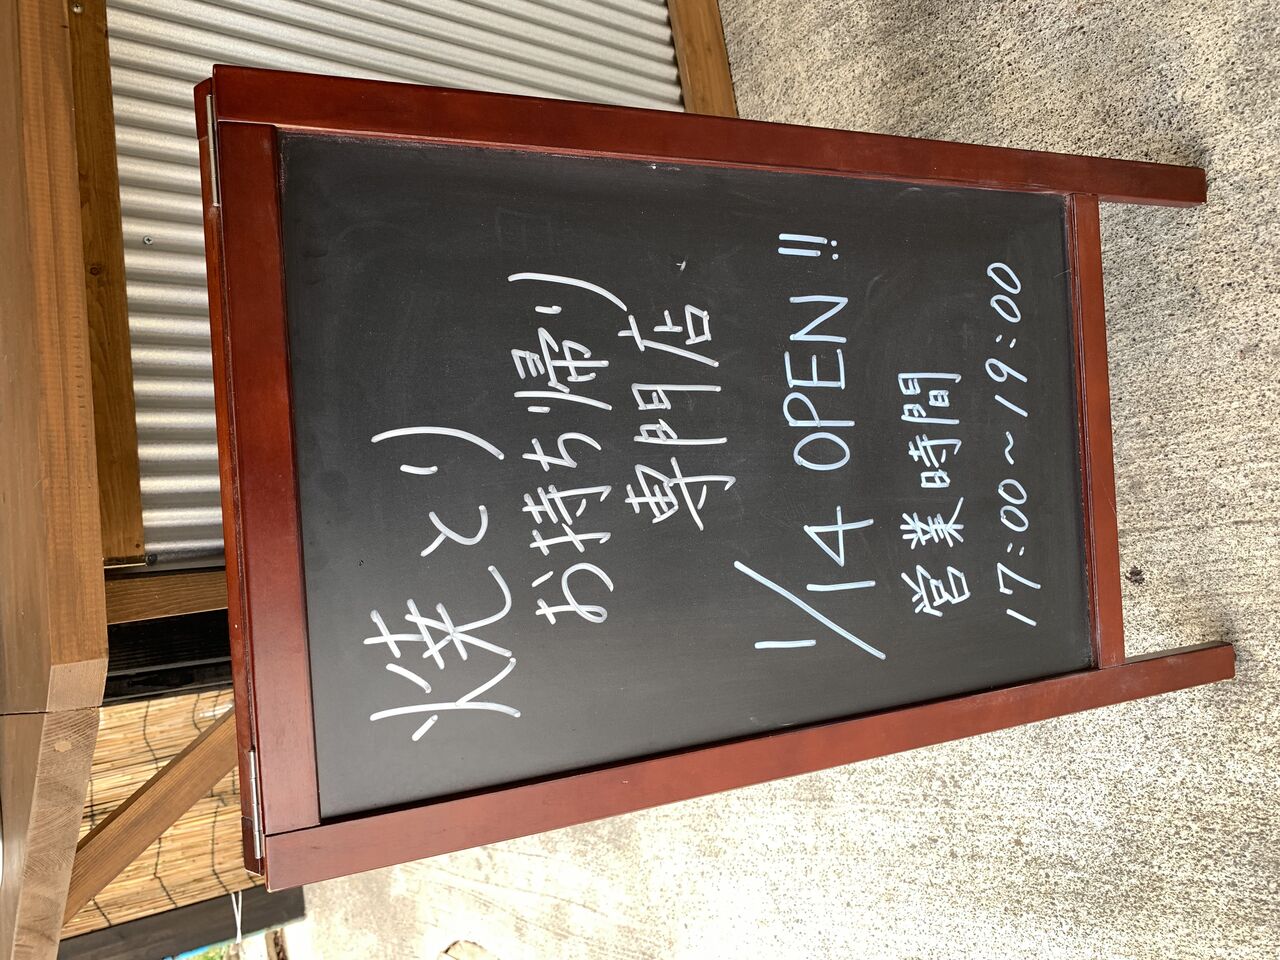 焼とり
お持ち帰り
専門店
1/14 OPEN!!
営業時間
17:00～19:00